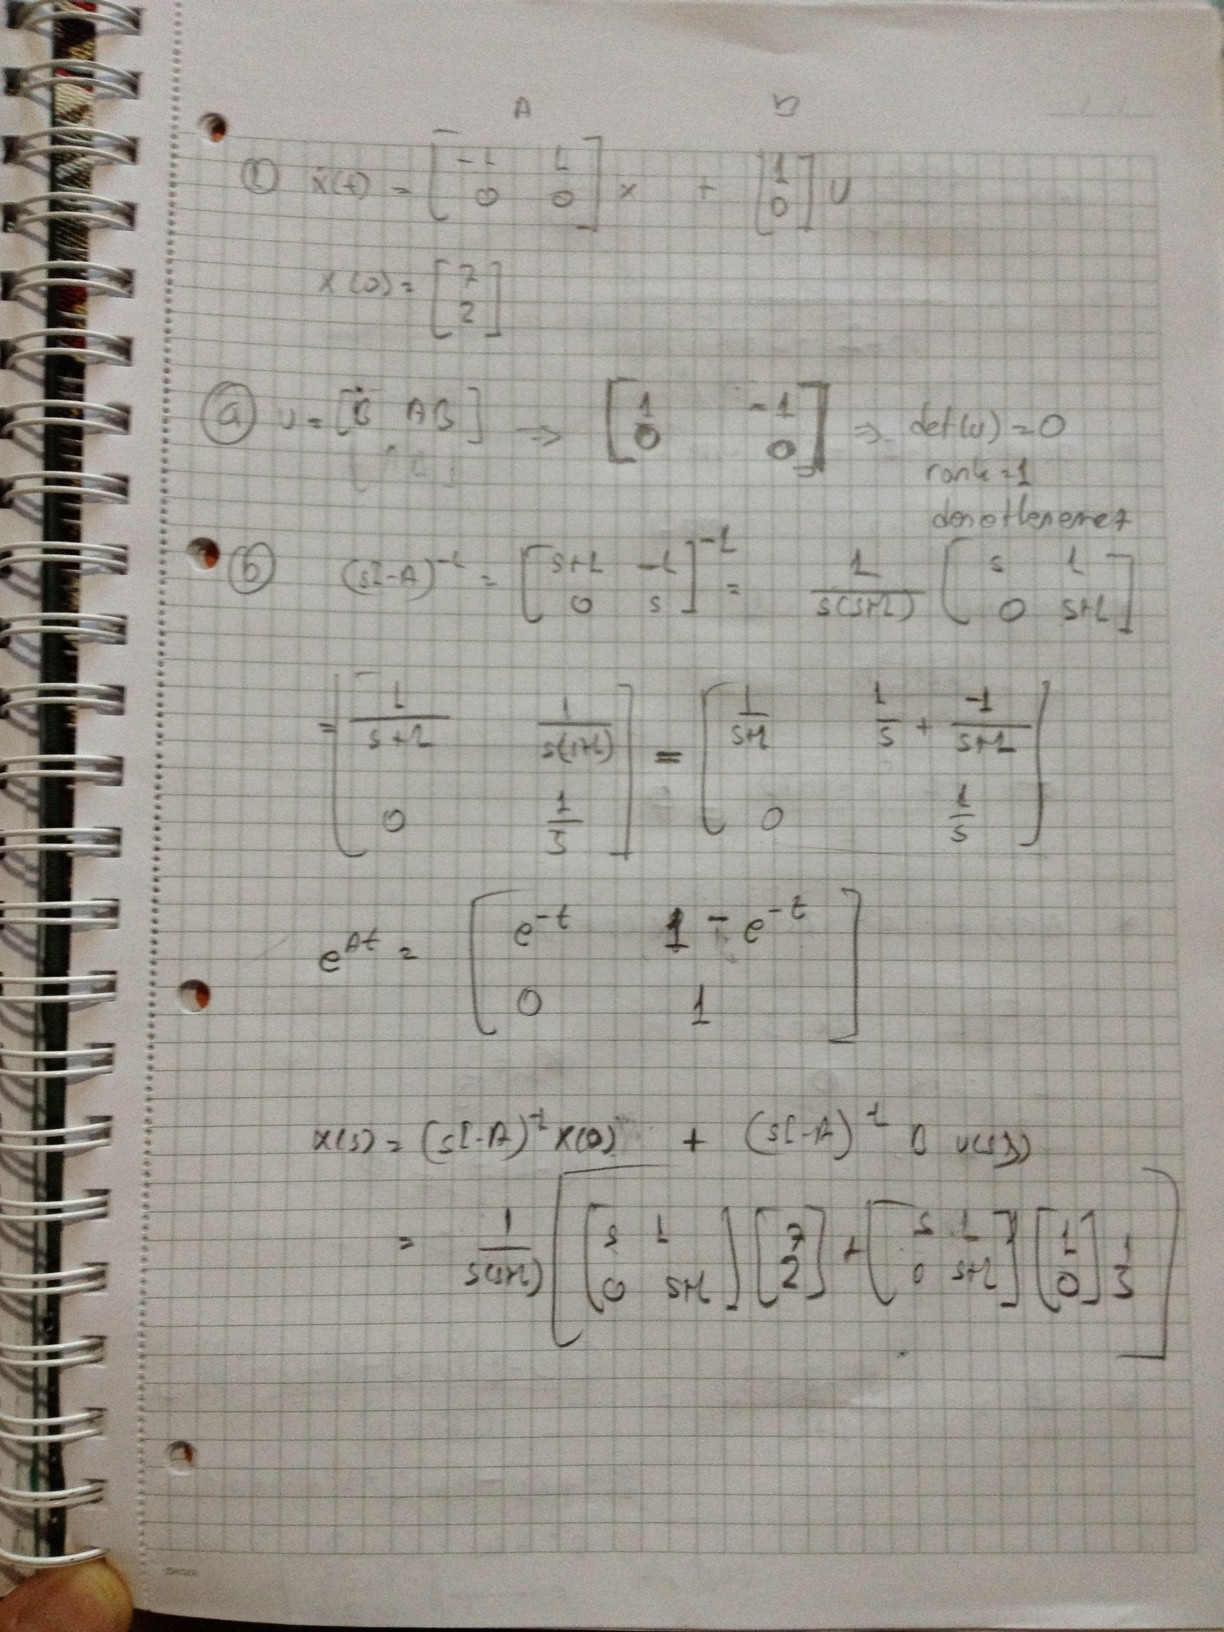 A B
① ẋ(t) = [-1 1; 0 0] x + [1; 0] U
x(0) = [7; 2]
ⓐ U = [B AB] ⇒ [1 -1; 0 0] ⇒ det(U) = 0
rank = 1
denetlenemez
ⓑ (sI-A)^-1 = [s+1 -1; 0 s]^-1 = 1/s(s+1) [s 1; 0 s+1]
= [1/s+1 1/s(s+1); 0 1/s] = [1/s+1 1/s + -1/s+1; 0 1/s]
e^At = [e^-t 1 - e^-t; 0 1]
x(s) = (sI-A)^-1 x(0) + (sI-A)^-1 B U(s)
= 1/s(s+1) [ [s 1; 0 s+1] [7; 2] + [s 1; 0 s+1] [1; 0] 1/s ]